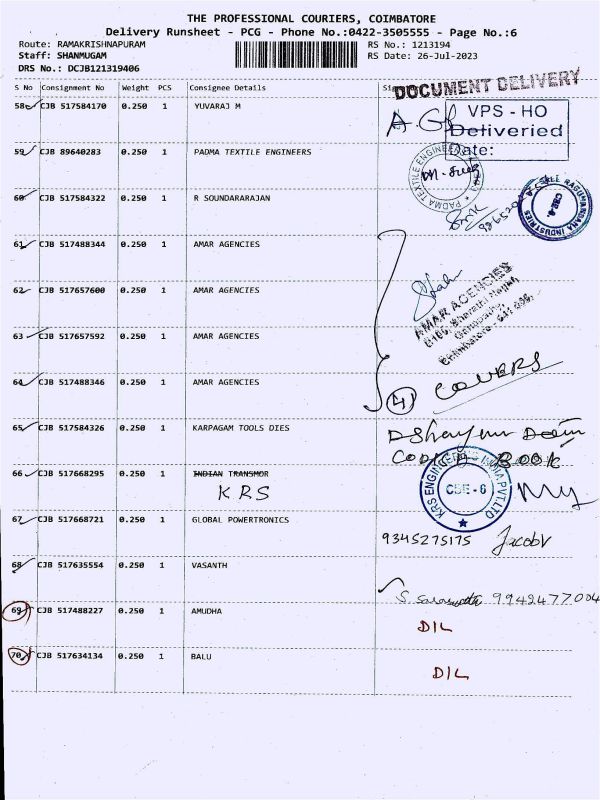 THE PROFESSIONAL COURIERS, COIMBATORE
Delivery Runsheet - PCG - Phone No.:0422-3505555 - Page No.:6
Route: RAMAKRISHNAPURAM
Staff: SHANMUGAM
DRS No.: DCJB121319406
RS No.: 1213194
RS Date: 26-Jul-2023
S No Consignment No Weight PCS Consignee Details
DOCUMENT DELIVERY
58 CJB 517584170 0.250 1 YUVARAJ M
VPS - HO
Deliveried
Date:
59 CJB 89640283 0.250 1 PADMA TEXTILE ENGINEERS
PADMA TEXTILE ENGINEERS
60 CJB 517584322 0.250 1 R SOUNDARARAJAN
CBE-6
INDUSTRIES
61 CJB 517488344 0.250 1 AMAR AGENCIES
62 CJB 517657600 0.250 1 AMAR AGENCIES
AMAR AGENCIES
Coimbatore
63 CJB 517657592 0.250 1 AMAR AGENCIES
64 CJB 517488346 0.250 1 AMAR AGENCIES
4 COVERS
65 CJB 517584326 0.250 1 KARPAGAM TOOLS DIES
BOOK
66 CJB 517668295 0.250 1 INDIAN TRANSMOR
KRS
KRS ENGINEERING INDIA PVT.LTD
CBE-6
67 CJB 517668721 0.250 1 GLOBAL POWERTRONICS
9345275175 Jacob
68 CJB 517635554 0.250 1 VASANTH
9942477004
69 CJB 517488227 0.250 1 AMUDHA
D/L
70 CJB 517634134 0.250 1 BALU
D/L